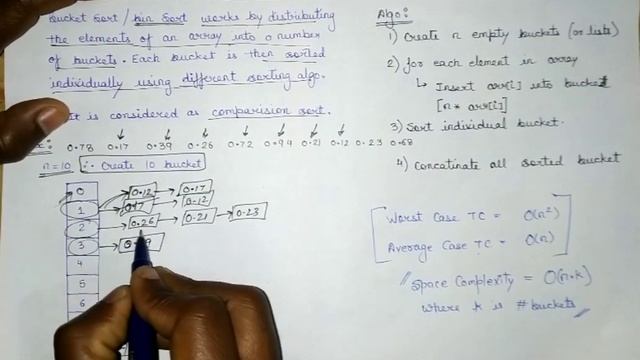 Bucket Sort / bin sort works by distributing
the elements of an array into a number
of buckets. Each bucket is then sorted
individually using different sorting algo.
It is considered as comparision sort.
0.78 0.17 0.39 0.26 0.72 0.94 0.21 0.12 0.23 0.68
n=10 ∴ Create 10 bucket
0 0.12 0.17
1 0.17 0.12
2 0.26 0.21 0.23
3
4
5
6
Algo:
1) Create n empty buckets (or lists)
2) for each element in array
↳ Insert arr[i] into bucket
[n * arr[i]]
3) Sort individual bucket.
4) Concatinate all sorted bucket
Worst Case TC = O(n²)
Average Case TC = O(n)
Space Complexity = O(n·k)
where k is # buckets